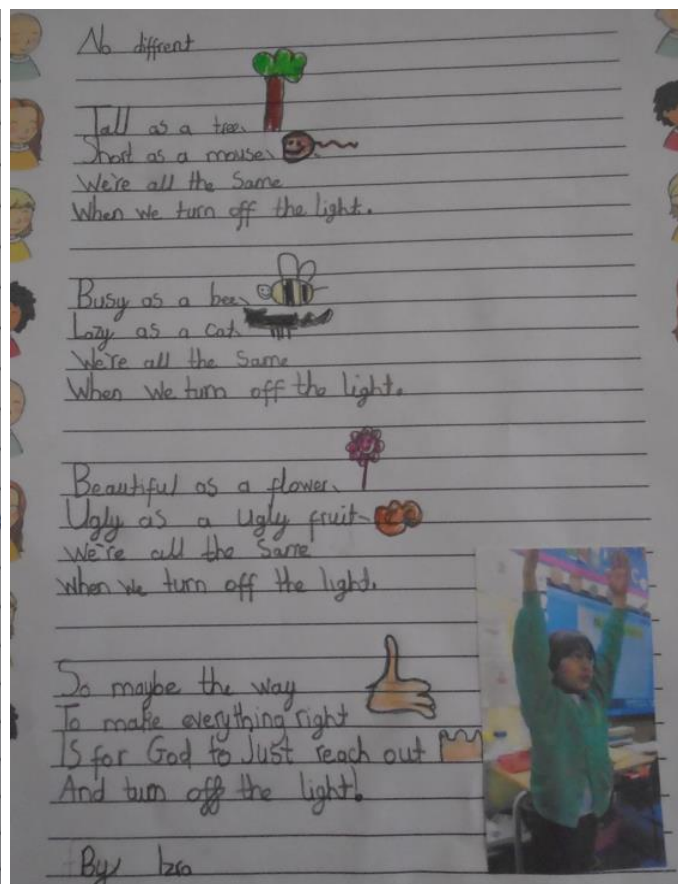 No diffrent
Tall as a tree.
Short as a mouse.
We're all the Same
When we turn off the light.
Busy as a bee.
Lazy as a cat.
We're all the Same
When we turn off the light.
Beautiful as a flower.
Ugly as a Ugly fruit
We're all the Same
When we turn off the light.
So maybe the way
To make everything right
IS for God to Just reach out
And turn off the light!
By Izra